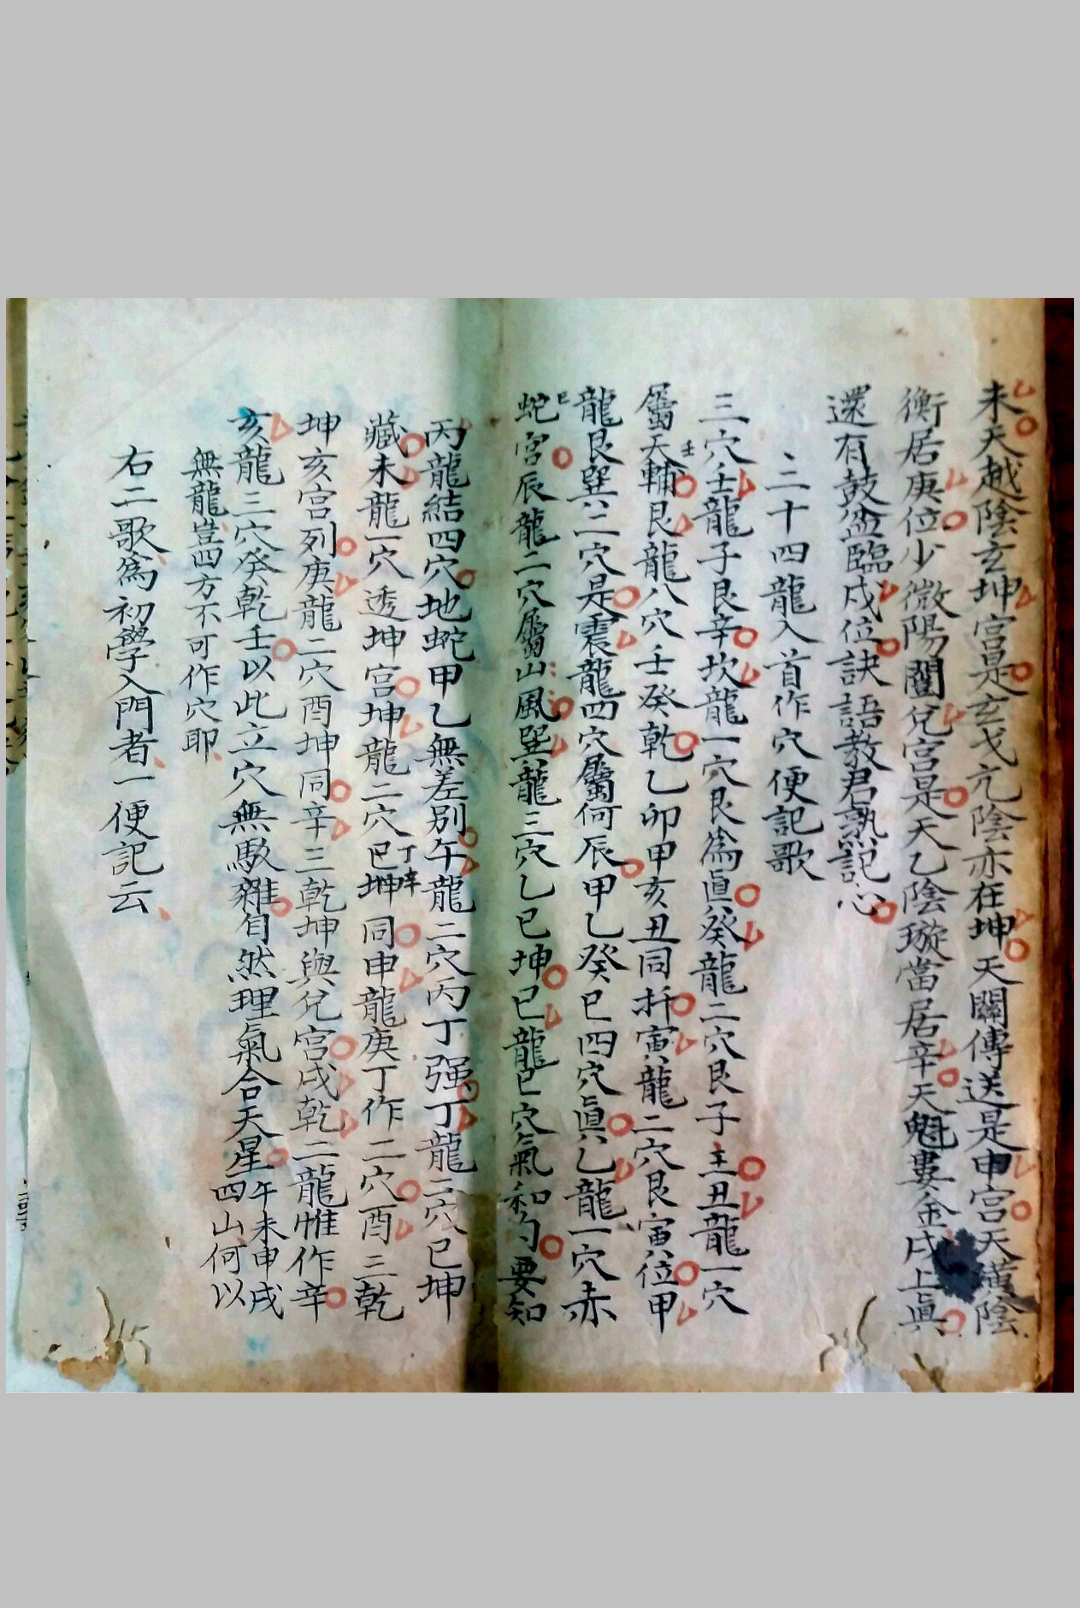 未天越陰玄坤宮是玄戈亢陰亦在坤天關傳送是申宮天潢陰
衡居庚位少微陽闔兌宮是天乙陰璇當居辛天魁婁金戌上眞
還有鼓盆臨戌位訣語教君熟記心
二十四龍入首作穴便記歌
三穴壬龍子艮辛坎龍一穴艮為眞癸龍二穴艮子主丑龍一穴
屬天輔艮龍八穴壬癸乾乙卯甲亥丑同扦寅龍二穴艮寅位甲
壬
龍艮巽二穴是震龍四穴屬何辰甲乙癸巳四穴眞乙龍一穴赤
蛇宮辰龍二穴屬山風巽龍三穴乙巳坤巳龍巳穴氣和勻要知
巳
丙龍結四穴地蛇甲乙無差别午龍二穴丙丁强丁龍二穴巳坤
藏未龍一穴透坤宮坤龍二穴巳坤同申龍庚丁作二穴酉三乾
丁辛
坤亥宮列庚龍二穴酉坤同辛三乾坤與兌宮戌乾二龍惟作辛
亥龍三穴癸乾壬以此立穴無駁雜自然理氣合天星午未申戌
四山何以
無龍豈四方不可作穴耶
右二歌為初學入門者一便記云